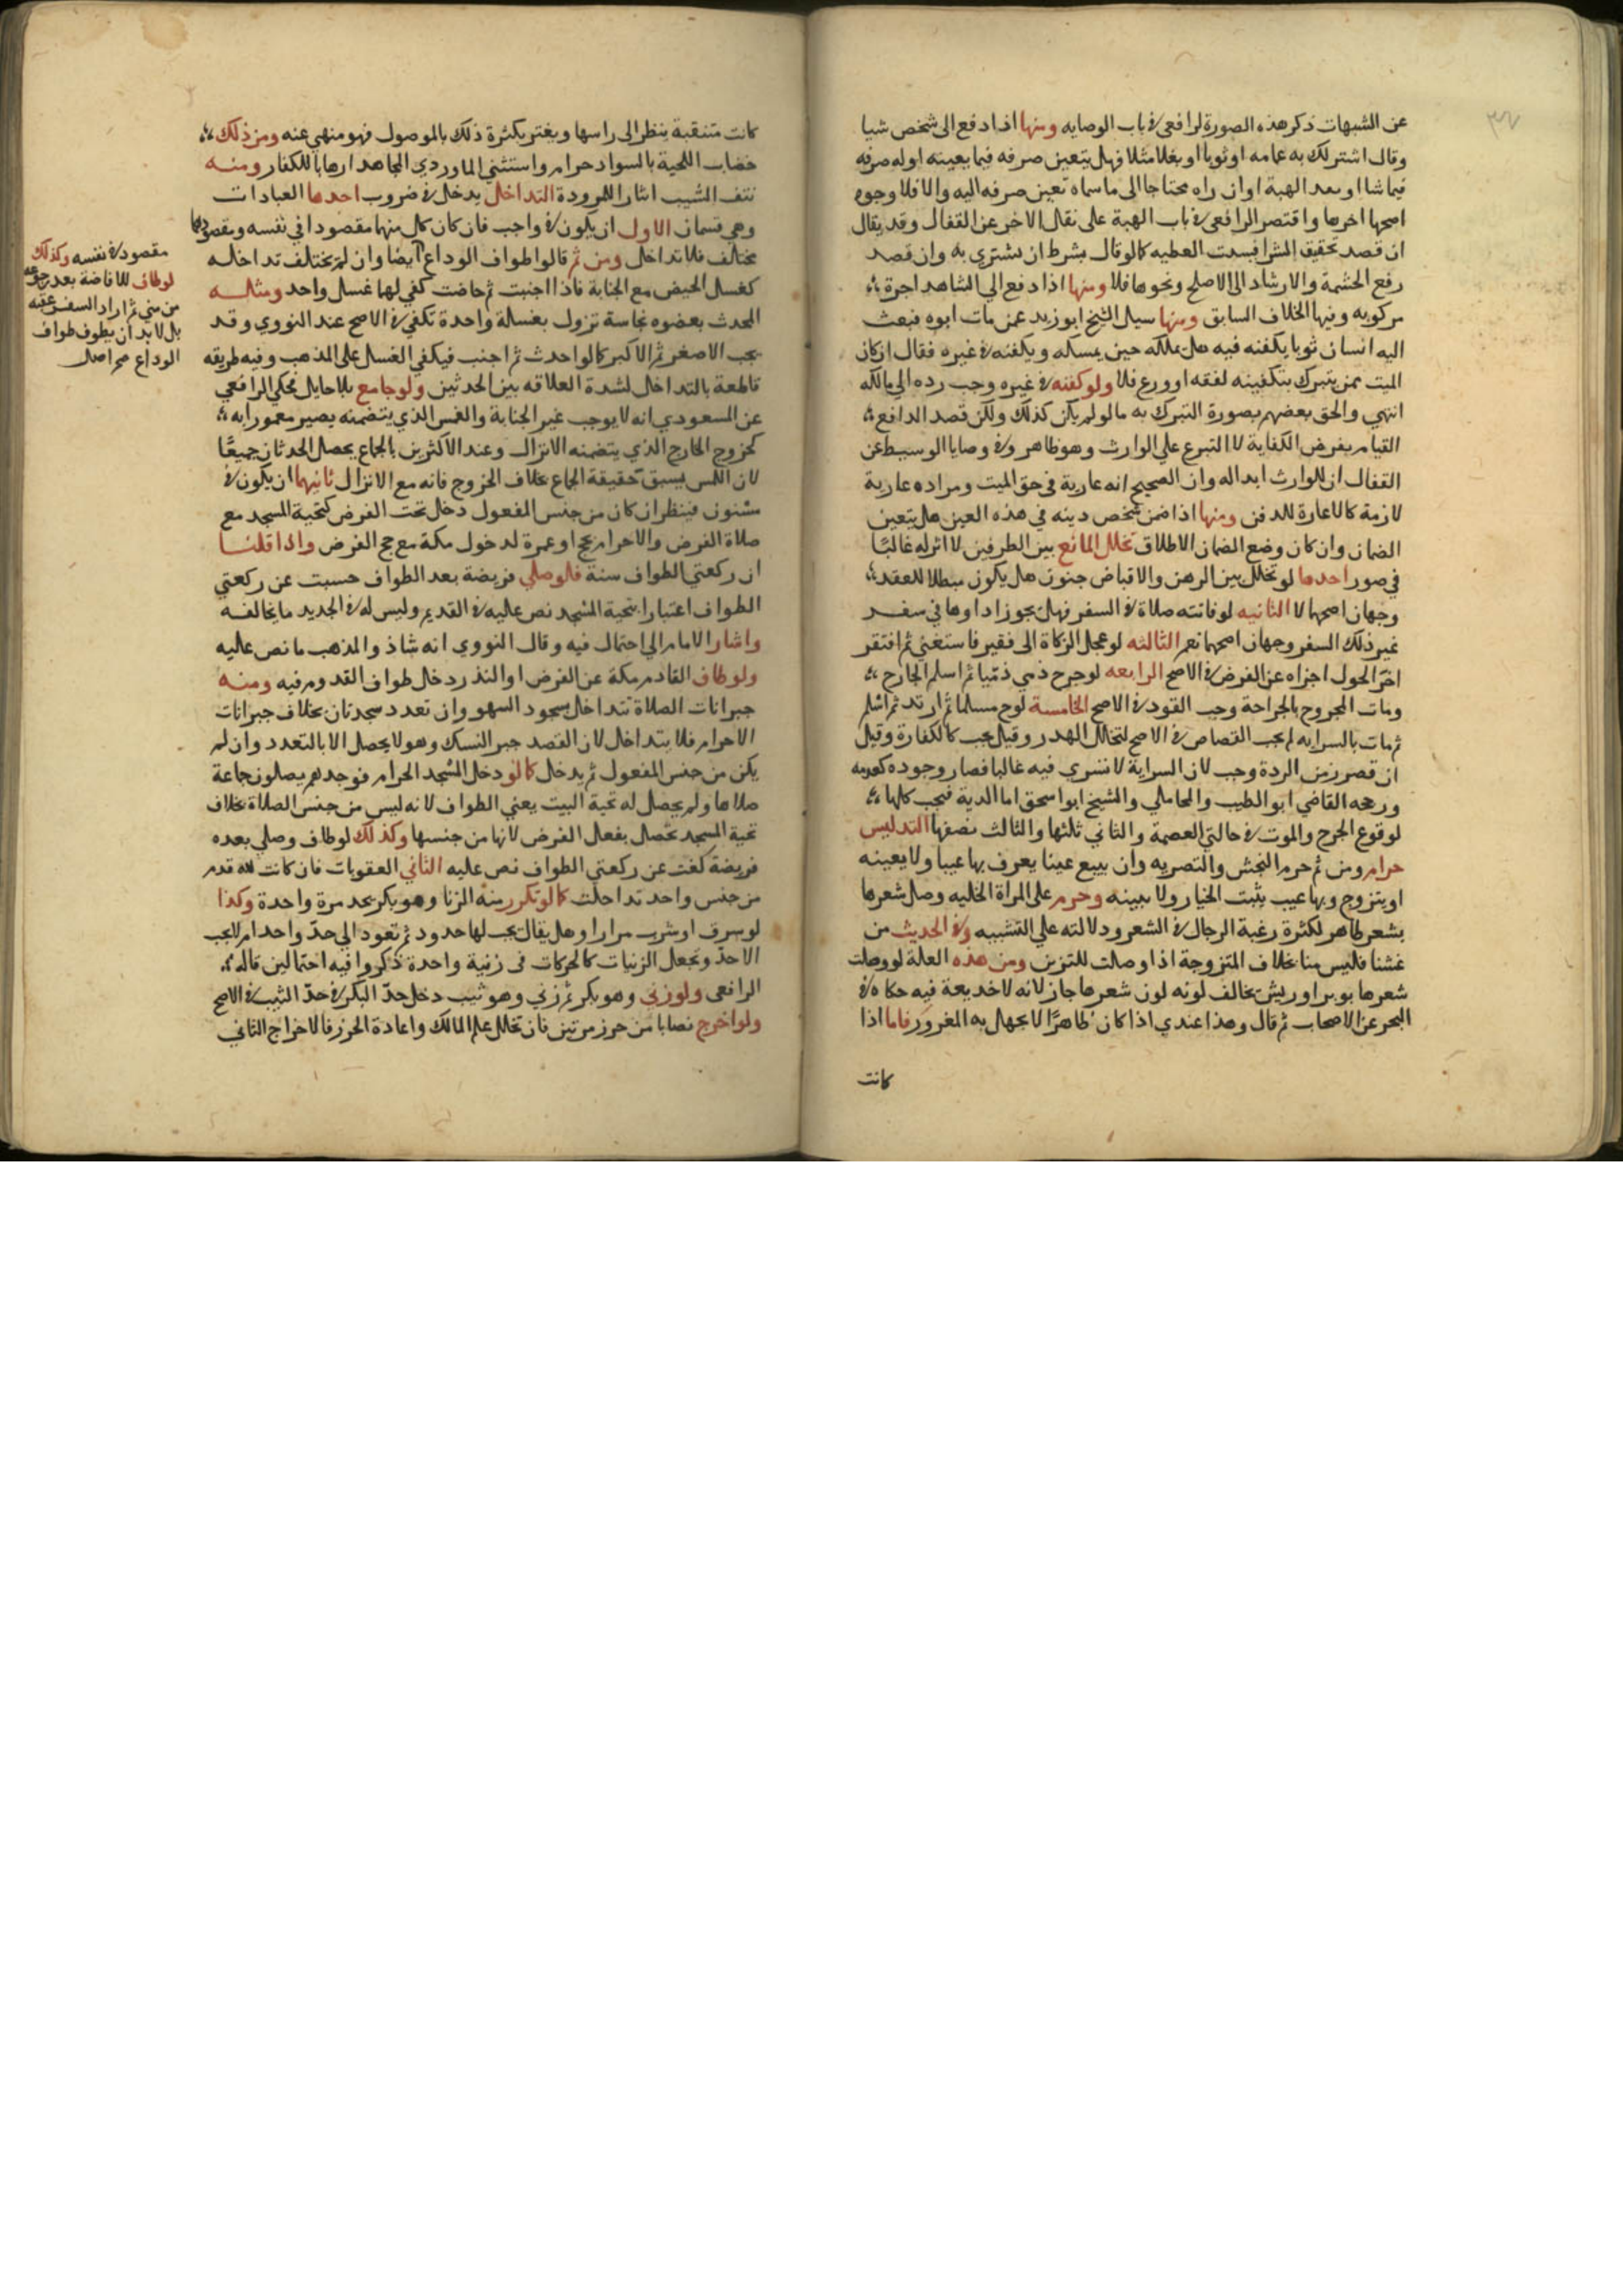 عن الشبهات ذكر هذه الصورة لرافعى فى باب الوصايه ومنها اذا دفع الى شخص شيا
وقال اشتر لك به عامه او ثوبا او بغلا مثلا فهل يتعين صرفه فيما بعينه اوله صرفه
فيما شا او بعد الهبة اوان راه محتاجا الى ما سماه تعين صرفه اليه والا فلا وجوه
اصحها اخرها واقتصر الرافعى فى باب الهبة على نقل الاخر عن القفال وقد يقال
ان قصد تحقيق الشرا فسدت العطيه كما لو قال بشرط ان تشترى به وان قصد
رفع الحشمة والارشاد الى الاصلح ونحوها فلا ومنها اذا دفع الي الشاهد اجرة
مركوبه وفيها الخلاف السابق ومنها سيل الشيخ ابو زيد عمن مات ابوه فبعث
اليه انسان ثوبا يكفنه فيه هل يملكه حين يمسكه ويكفنه فى غيره فقال ان كان
الميت ممن يتبرك بتكفينه لفقه او ورع فلا ولو كفنه فى غيره وجب رده الى مالكه
انتهي والحق بعضهم بصورة التبرك به ما لو لم يكن كذلك ولكن قصد الدافع
القيام بفرض الكفاية لا التبرع علي الوارث وهو ظاهر وفى وصايا الوسيط عن
القفال ان للوارث ابداله وان الصحيح انه عارية فى حق الميت ومراده عارية
لازمة كالاعارة للدفن ومنها اذا ضمن شخص دينه في هذه العين هل يتعين
الضمان وان كان وضع الضمان الاطلاق تخلل المانع بين الطرفين لا اثر له غالبًا
في صور احدها لو تخلل بين الرهن والاقباض جنون هل يكون مبطلا للعقد
وجهان اصحها لا الثانيه لو فاتته صلاة فى السفر فهل يجوز اداوها في سفر
غير ذلك السفر وجهان اصحهما نعم الثالثه لو عجل الزكاة الى فقير فاستغنى ثم افتقر
اخر الحول اجزاه عن الفرض فى الاصح الرابعه لو جرح ذمي ذمّيا ثم اسلم الجارح
ومات المجروح بالجراحة وجب القود فى الاصح الخامسة لو جرح مسلما ثم ارتد ثم اسلم
ثم مات بالسرايه لم يجب القصاص فى الاصح لتخلل المهدر وقيل يجب كالكفارة وقيل
ان قصر زمن الردة وجب لان السراية لا تسري فيه غالبا فصار وجوده كعدمه
ورجحه القاضي ابو الطيب والمحاملي والشيخ ابو اسحق اما الدية فتجب كلها
لوقوع الجرح والموت فى حالتي العصمة والثاني ثلثها والثالث نصفها التدليس
حرام ومن ثم حرم النجش والتصريه وان يبيع عينا يعرف بها عيبا ولا يعينه
او يتزوج وبها عيب يثبت الخيار ولا يبينه وحرم على المراة الخليه وصل شعرها
بشعر طاهر لكثرة رغبة الرجال فى الشعر ودلالته علي التشبيه وفى الحديث من
غشنا فليس منا بخلاف المتزوجة اذا وصلت للتزين ومن هذه العلة لو وصلت
شعرها بوبر او ريش يخالف لونه لون شعرها جاز لانه لا خديعة فيه حكاه فى
البحر عن الاصحاب ثم قال وهذا عندي اذا كان ظاهرًا لا يجهل به المغرور فاما اذا
كانت
كانت متنقبة ينظر الى راسها ويغتر بكثرة ذلك بالموصول فهو منهى عنه ومن ذلك
خضاب اللحية بالسواد حرام واستثني الماوردي المجاهد ارهابا للكفار ومنه
نتف الشيب ايثارا للمرودة التداخل يدخل فى ضروب احدها العبادات
وهي قسمان الاول ان يكون فى واجب فان كان كل منهما مقصودا في نفسه ومقصودها
مختلف فلا تداخل ومن ثم قالوا طواف الوداع ايضا وان لم يختلف تداخله
كغسل الحيض مع الجنابة فاذا اجنبت ثم حاضت كفي لها غسل واحد ومثاله
المحدث بعضوه نجاسة تزول بغسلة واحدة تكفي فى الاصح عند النووي وقد
يجب الاصغر ثم الاكبر كما لو احدث ثم اجنب فيكفي الغسل على المذهب وفيه طريقه
قاطعة بالتداخل لشدة العلاقه بين الحدثين ولو جامع بلا حايل فحكي الرافعي
عن المسعودي انه لا يوجب غير الجنابة واللمس الذي يتضمنه يصير مغمورا به
كخروج الخارج الذي يتضمنه الانزال وعند الاكثرين بالجماع يحصل الحدثان جميعًا
لان اللمس يسبق حقيقة الجماع بخلاف الخروج فانه مع الانزال ثانيهما ان يكون فى
مسنون فينظر ان كان من جنس المفعول دخل تحت الفرض كتحية المسجد مع
صلاة الفرض والاحرام بحج او عمرة لدخول مكة مع حج الفرض واذا قلنا
ان ركعتي الطواف سنة فلو صلي فريضة بعد الطواف حسبت عن ركعتي
الطواف اعتبارا بتحية المسجد نص عليه فى القديم وليس له فى الجديد ما يخالفه
واشار الامام الي احتمال فيه وقال النووي انه شاذ والمذهب ما نص عليه
ولو طاف القادم مكة عن الفرض او النذر دخل طواف القدوم فيه ومنه
جبرانات الصلاة تتداخل بسجود السهو وان تعدد سجدتان بخلاف جبرانات
الاحرام فلا يتداخل لان القصد جبر النسك وهو لا يحصل الا بالتعدد وان لم
يكن من جنس المفعول لم يدخل كما لو دخل المسجد الحرام فوجدهم يصلون جماعة
صلاها ولم يحصل له تحية البيت يعني الطواف لانه ليس من جنس الصلاة بخلاف
تحية المسجد تحصل بفعل الفرض لانها من جنسها وكذلك لو طاف وصلي بعده
فريضة كفت عن ركعتي الطواف نص عليه الثاني العقوبات فان كانت لله قدم
من جنس واحد تداخلت كما لو تكرر منه الزنا وهو بكر يحد مرة واحدة وكذا
لو سرف او شرب مرارا وهل يقال يجب لها حدود ثم تعود الي حدّ واحد ام لا يجب
الا حدّ وتجعل الزنيات كالحركات فى زنية واحدة ذكروا فيه احتمالين قاله
الرافعى ولو زني وهو بكر ثم زني وهو ثيب دخل حدّ البكر فى حدّ الثيب فى الاصح
ولو اخرج نصابا من حرز مرتين فان تخلل علم المالك واعادة الحرز فالاخراج الثانى
مقصود فى نفسه وكذلك
لو طاف للافاضة بعد رجوعه
من مني ثم اراد السفر عقبه
بل لا بد ان يطوف طواف
الوداع صح اصل